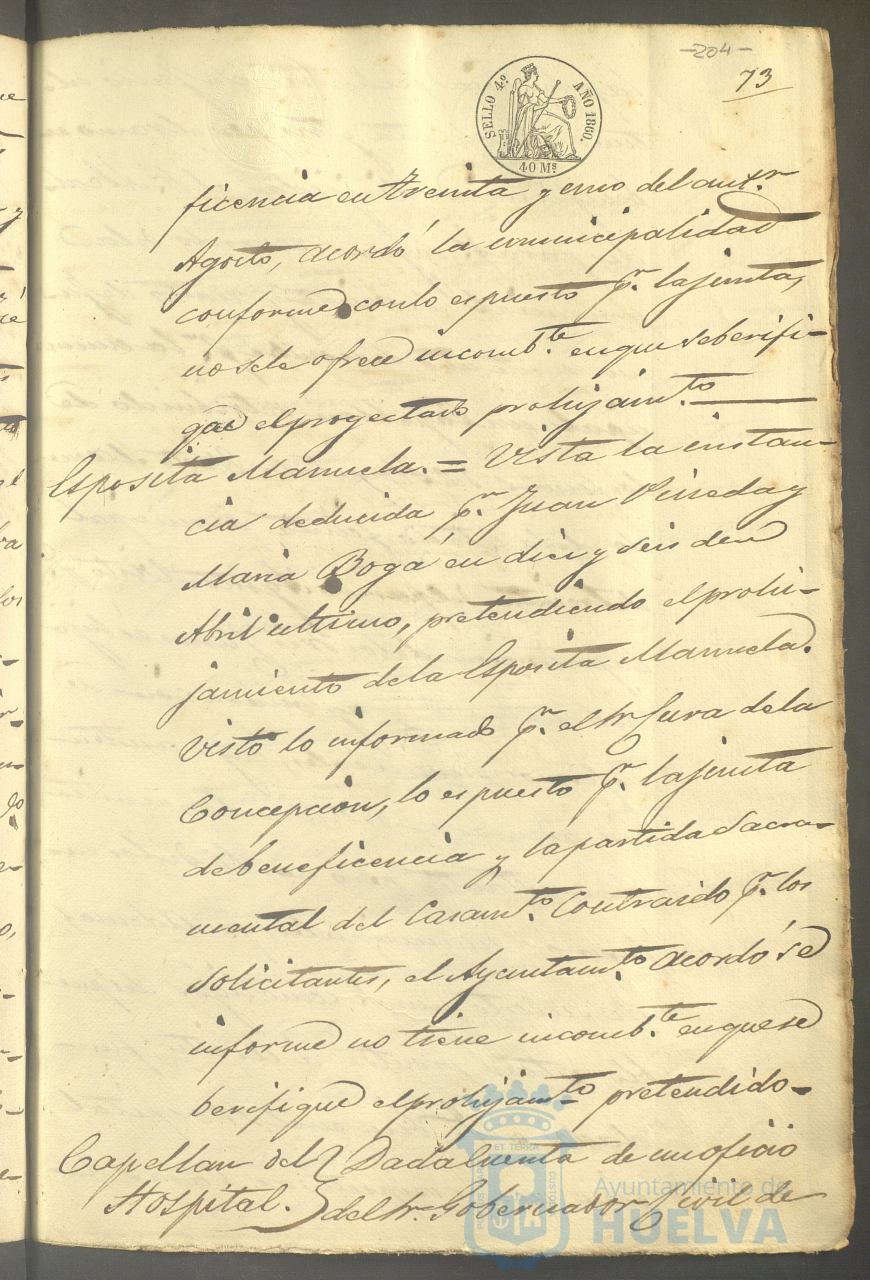 -204-
73
SELLO 4º AÑO 1860.
40 Ms
ficencia en treinta y uno del antr.
Agosto, acordó la municipalidad
conforme con lo espuesto pr. la junta,
no se le ofrece incombte. en que se berifi-
que el proyectado prohijamto.
Esposita Manuela. = Vista la instan-
cia deducida pr. Juan Pineda y
Maria Boga en diez y seis de
Abril ultimo, pretendiendo el prohi-
jamiento de la Esposita Manuela.
Visto lo informado pr. el Sr Cura de la
Concepcion, lo espuesto pr. la junta
de beneficencia y la partida Sacra-
mental del Casamto. Contraido pr. los
Solicitantes, el Ayuntamto. acordó se
informe no tiene incombte. en que se
berifique el prohijamto pretendido-
Capellan del Dada Cuenta de un oficio
Hospital. del Sr. Gobernador Civil de
Ayuntamiento de
HUELVA